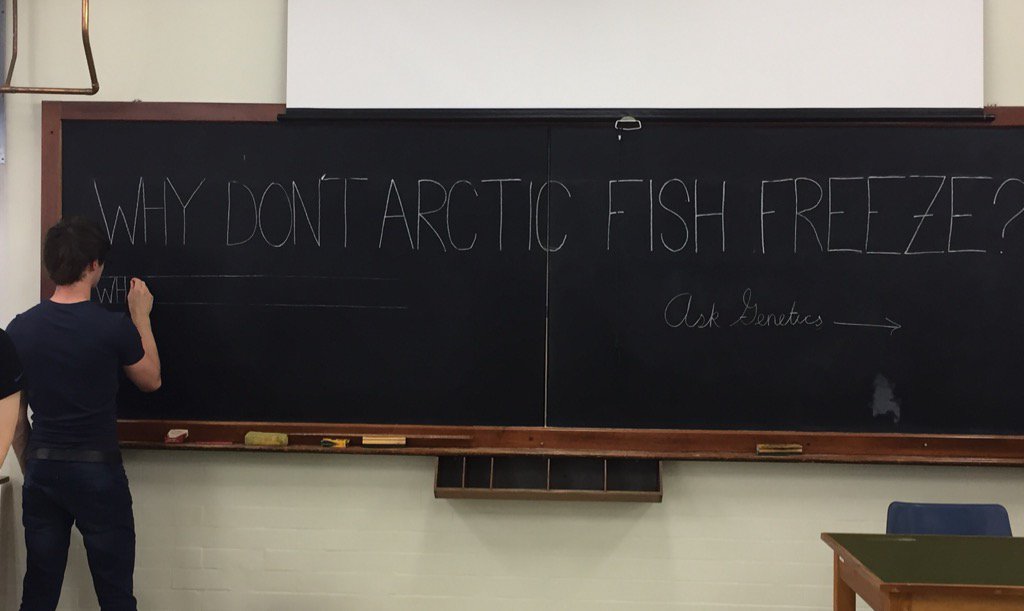 WHY DON'T ARCTIC FISH FREEZE?
WH
Ask Genetics →